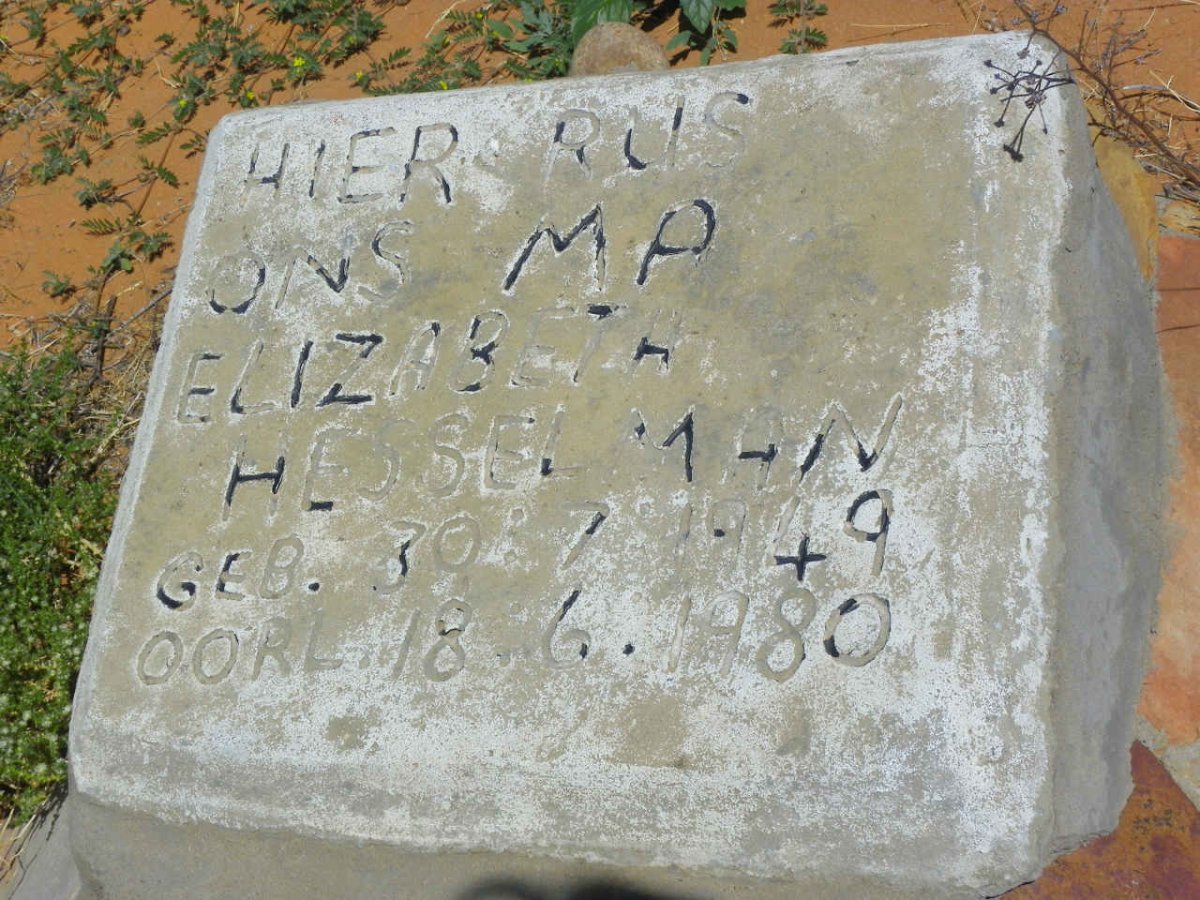 HIER RUS
ONS MA
ELIZABETH
HESSELMAN
GEB. 30.7.1949
OORL. 18.6.1980